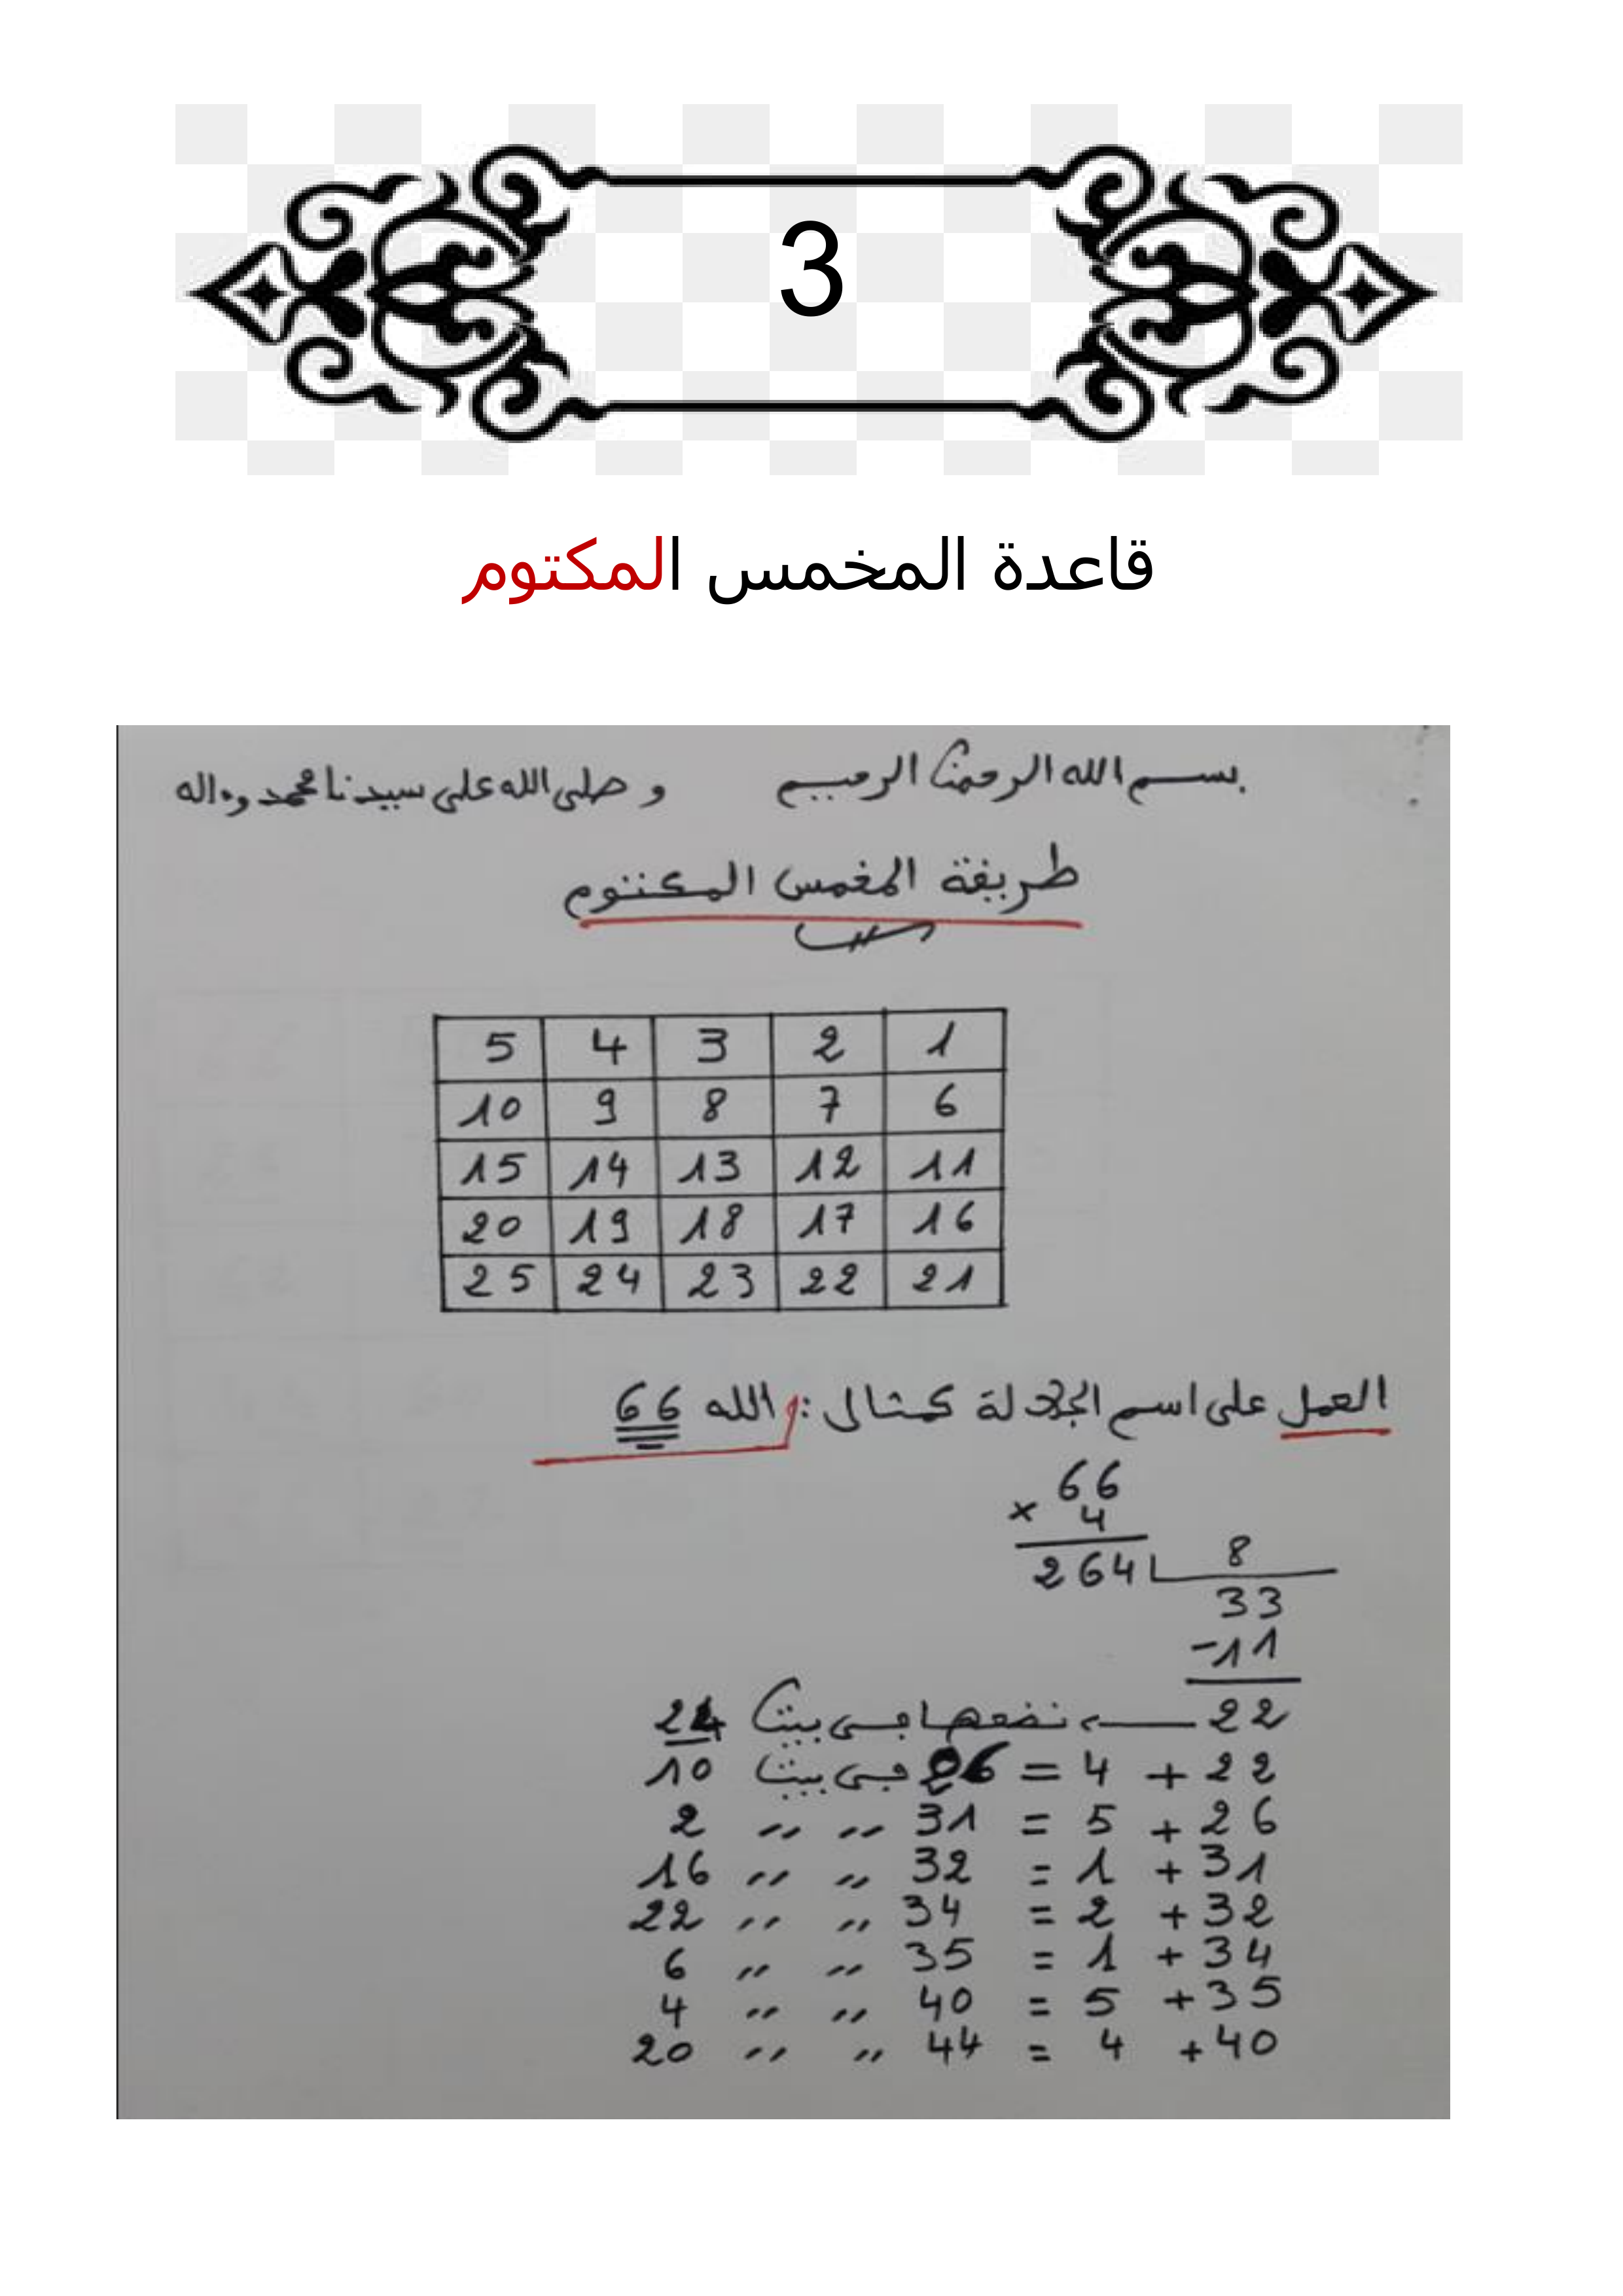 3
قاعدة المخمس المكتوم
بسم الله الرحمن الرحيم و صلى الله على سيدنا محمد وءاله
طريقة المخمس المكتوم
5 4 3 2 1
10 9 8 7 6
15 14 13 12 11
20 19 18 17 16
25 24 23 22 21
العمل على اسم الجلالة كمثال : الله 66
66
× 4
264 8
33
-11
22 نضعها في بيت 24
22 + 4 = 26 في بيت 10
26 + 5 = 31 〃 〃 2
31 + 1 = 32 〃 〃 16
32 + 2 = 34 〃 〃 22
34 + 1 = 35 〃 〃 6
35 + 5 = 40 〃 〃 4
40 + 4 = 44 〃 〃 20